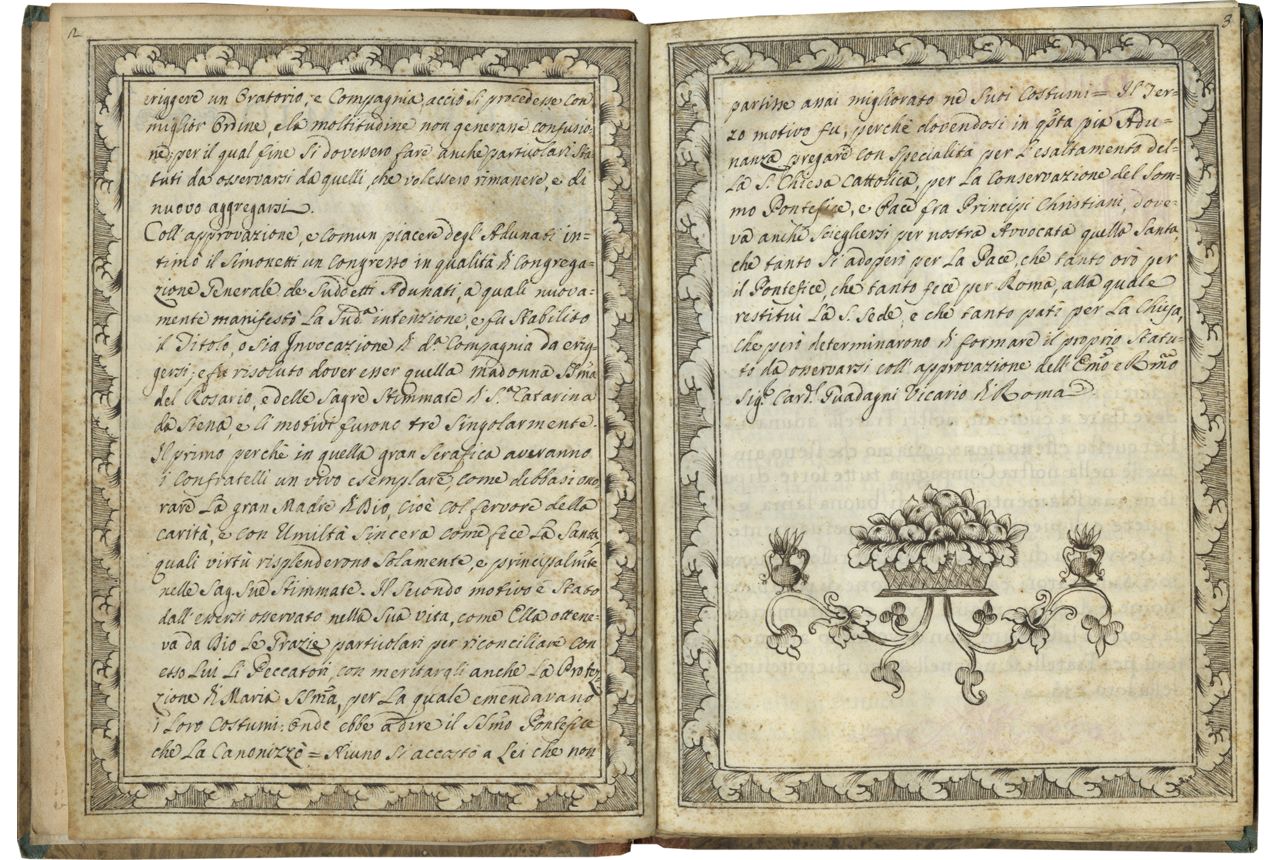 12
eriggere un Oratorio, e Compagnia, acciò si procedesse con
miglior Ordine, e la moltitudine non generasse confusio-
ne; per il qual fine si dovessero fare anche particolari Sta-
tuti da osservarsi da quelli, che volessero rimanere, e di
nuovo aggregarsi.
Coll' approvazione, e comun piacere degl' Adunati in-
timò il Simonetti un Congresso in qualità di Congrega-
zione Generale de Sudetti Adunati, a quali nuova-
mente manifestò La Sud.ª intenzione, e fu Stabilito
il Titolo, o sia Invocazione di d.ª Compagnia da erig-
gersi; e fu risoluto dover esser quella Madonna SSma
del Rosario, e delle Sagre Stimmate di S.ª Catarina
da Siena, e li motivi furono tre singolarmente.
Il primo perchè in quella gran Serafica averanno
i Confratelli un vivo esemplare, come debbasi ono-
rare La gran Madre di Dio, cioè col fervore della
carità, e con Umiltà Sincera come fece La Santa
quali virtù risplenderono Solamente, e principalmte
nelle Sag. Sue Stimmate. Il Secondo motivo è Stato
dall' essersi osservato nella Sua Vita, come Ella ottene-
va da Dio Le Grazie particolari per riconciliare con
esso Lui Li Peccatori, con meritargli anche La Protez-
zione di Maria SSma, per La quale emendavano
i Loro Costumi: Onde ebbe a dire il SSmo Pontefice
che La Canonizzò = Niuno Si accostò a Lei che non
3
partisse assai migliorato ne Suoi Costumi = Il Ter-
zo motivo fu, perchè dovendosi in qsta pia Adu-
nanza pregare con Specialità per L'esaltamento del-
La S. Chiesa Cattolica, per La Conservazione del Som-
mo Pontefice, e Pace fra Principi Christiani, dove-
va anche Sciegliersi per nostra Avvocata quella Santa,
che tanto Si adoperò per La Pace, che tanto orò per
il Pontefice, che tanto fece per Roma, alla quale
restituì La S. Sede, e che tanto patì per La Chiesa,
Che però determinarono di formare il proprio Statu-
to da osservarsi coll' approvazione dell' Emo e Rmo
Sig.r Card.l Guadagni Vicario di Roma